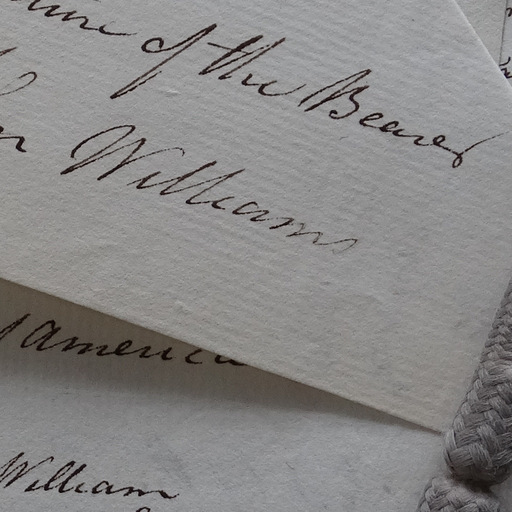 of the Bearer
Williams
America
William